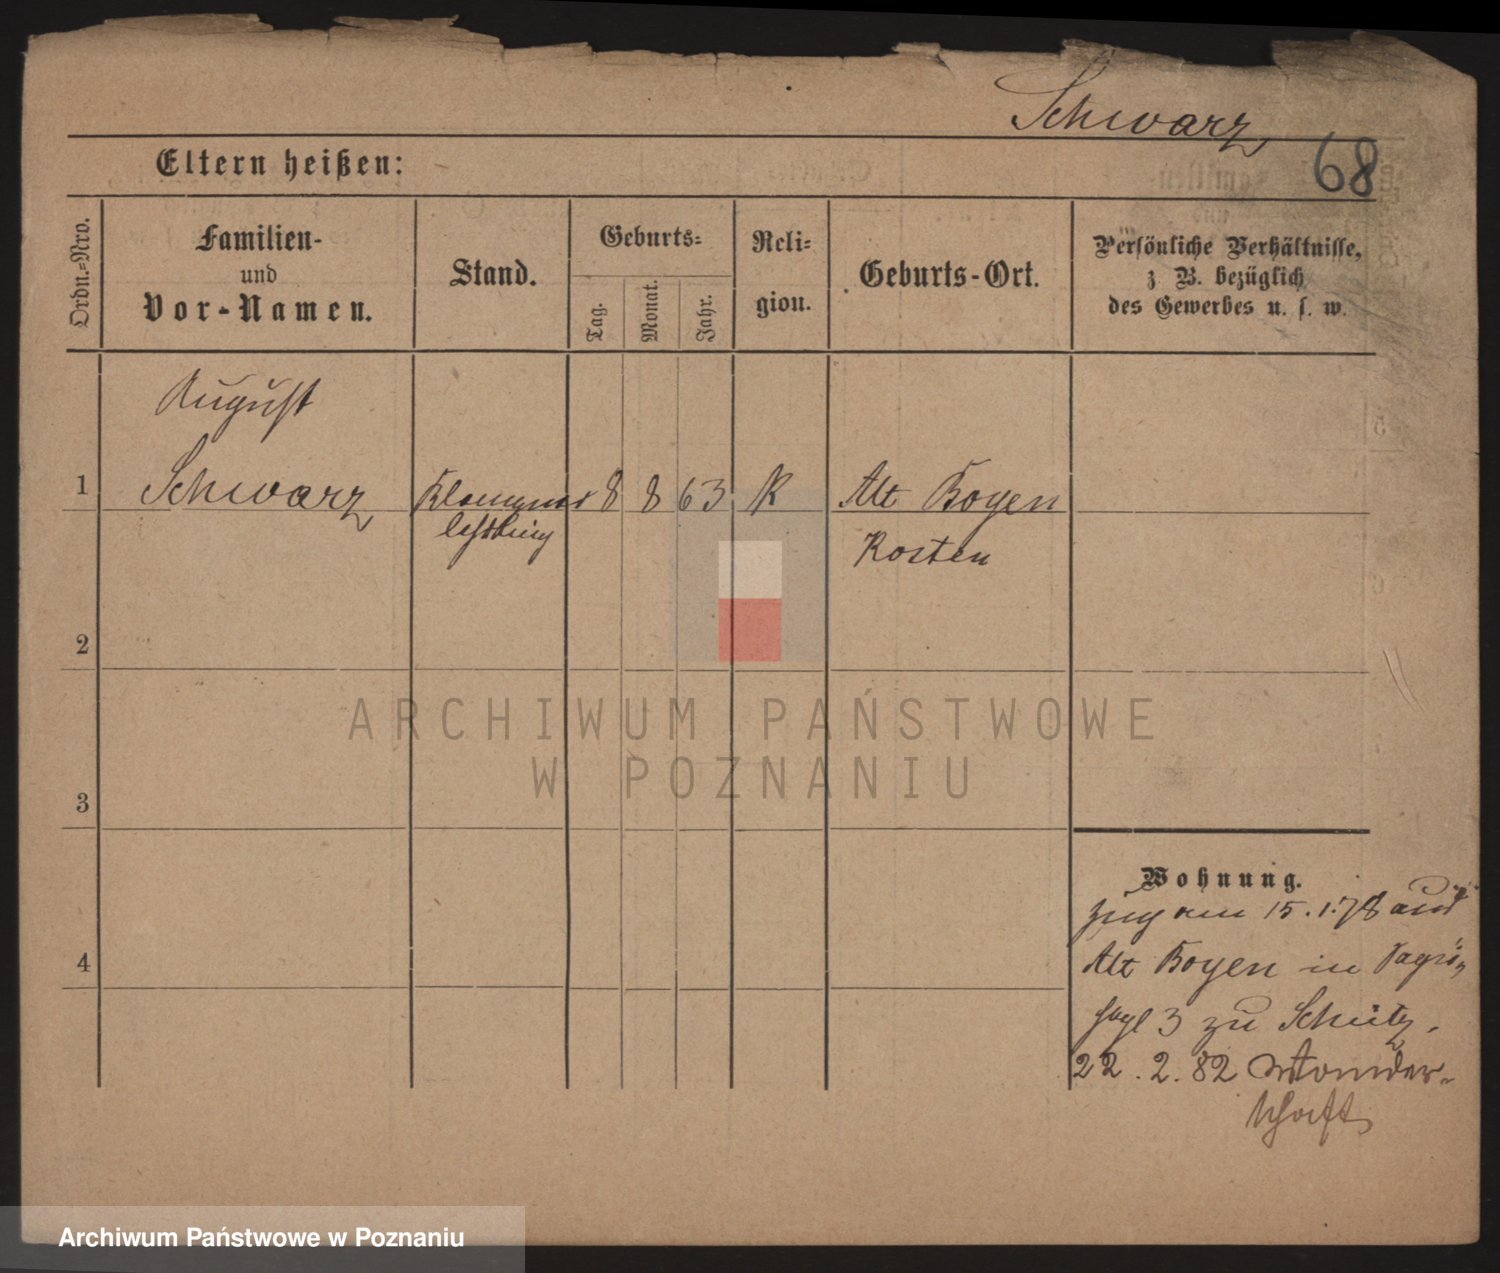 Schwarz
68
Eltern heißen:
Ordn.=Nro.
Familien-
und
Vor-Namen.
Stand.
Geburts=
Tag.
Monat.
Jahr.
Reli=
gion.
Geburts-Ort.
Persönliche Verhältnisse,
z B. bezüglich
des Gewerbes u. s. w.
August
1 Schwarz 8 8 63 K Alt Boyen
Kosten
2
3
4
ARCHIWUM PAŃSTWOWE
W POZNANIU
Wohnung.
zug am 15.1.78 aus
Alt Boyen in
3 zu Schütz.
22.2.82
schaft
Archiwum Państwowe w Poznaniu